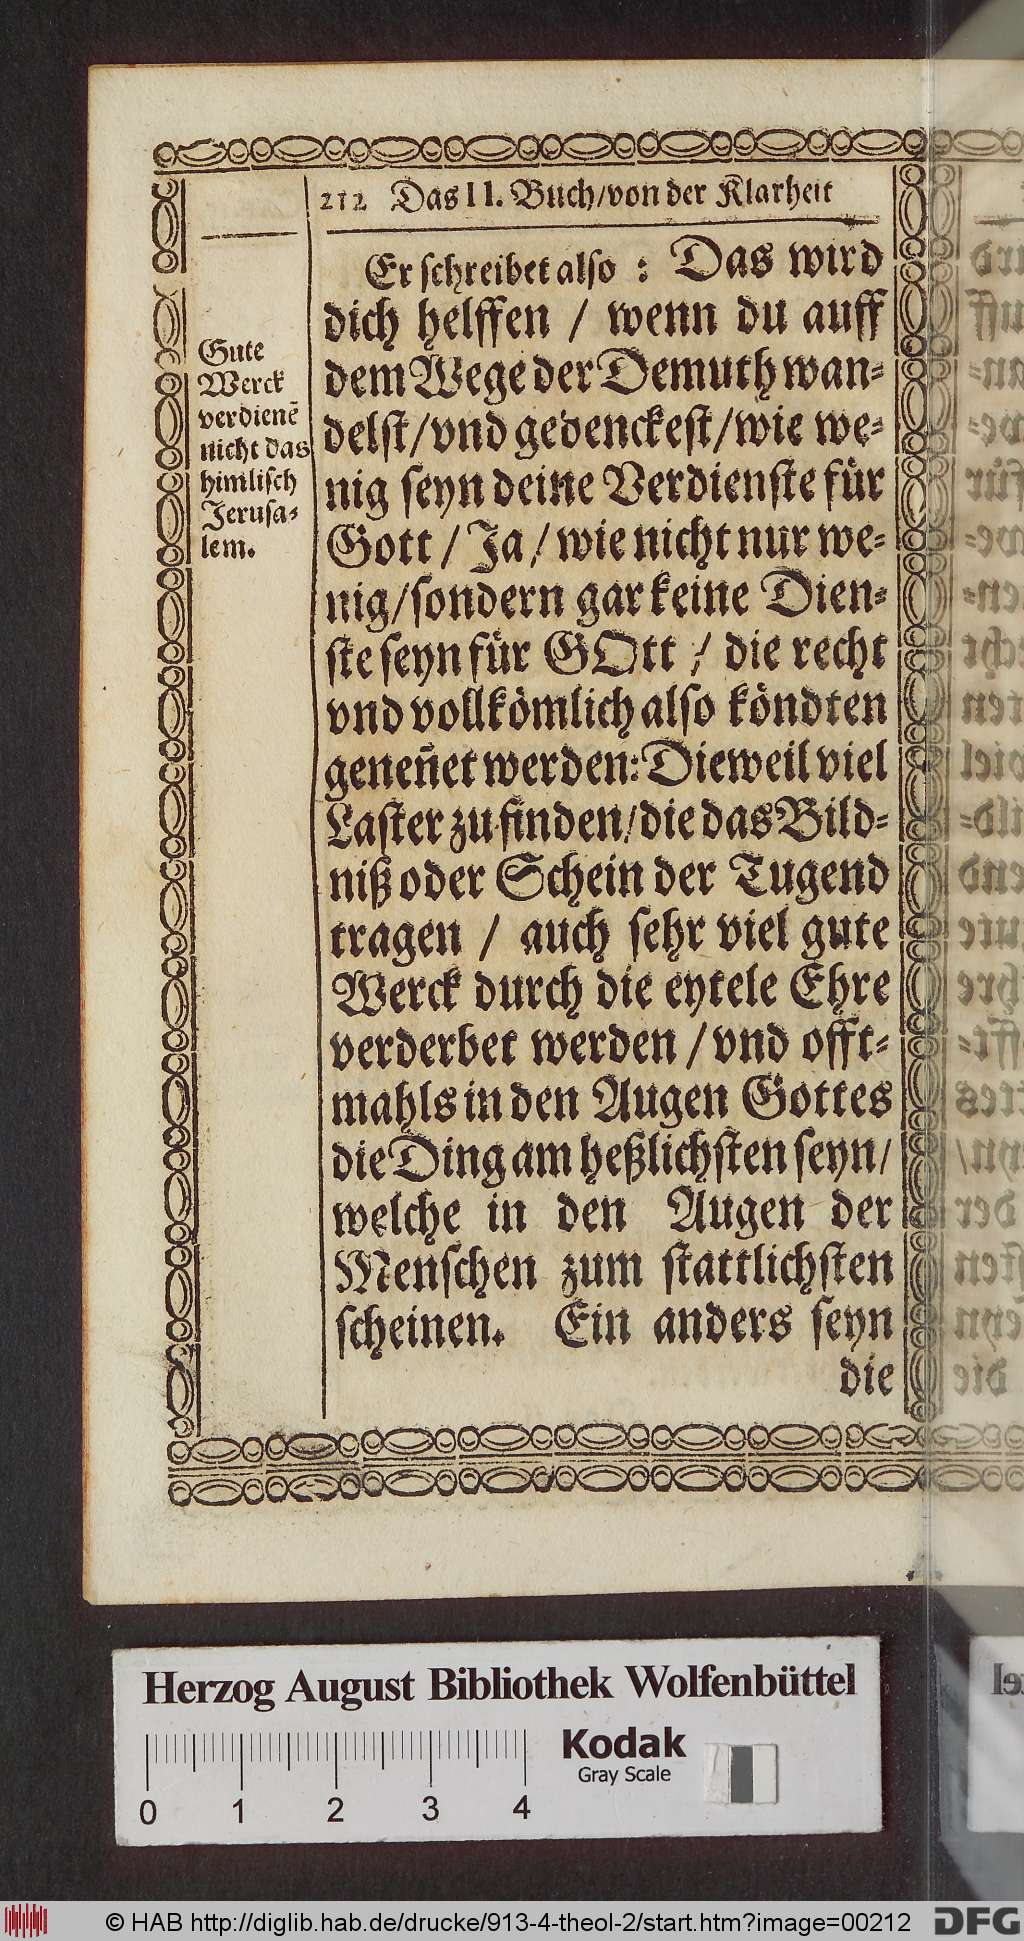 212 Das II. Buch/von der Klarheit
Er schreibet also : Das wird
dich helffen / wenn du auff
dem Wege der Demuth wan-
delst/vnd gedenckest/wie we-
nig seyn deine Verdienste für
Gott / Ja / wie nicht nur we-
nig/sondern gar keine Dien-
ste seyn für GOtt / die recht
vnd vollkömlich also köndten
geneñet werden: Dieweil viel
Laster zu finden/die das Bild-
niß oder Schein der Tugend
tragen / auch sehr viel gute
Werck durch die eytele Ehre
verderbet werden / vnd offt-
mahls in den Augen Gottes
die Ding am heßlichsten seyn/
welche in den Augen der
Menschen zum stattlichsten
scheinen. Ein anders seyn
die
Gute
Werck
verdienẽ
nicht das
himlisch
Jerusa-
lem.
Herzog August Bibliothek Wolfenbüttel
Kodak
Gray Scale
0 1 2 3 4
© HAB http://diglib.hab.de/drucke/913-4-theol-2/start.htm?image=00212
DFG